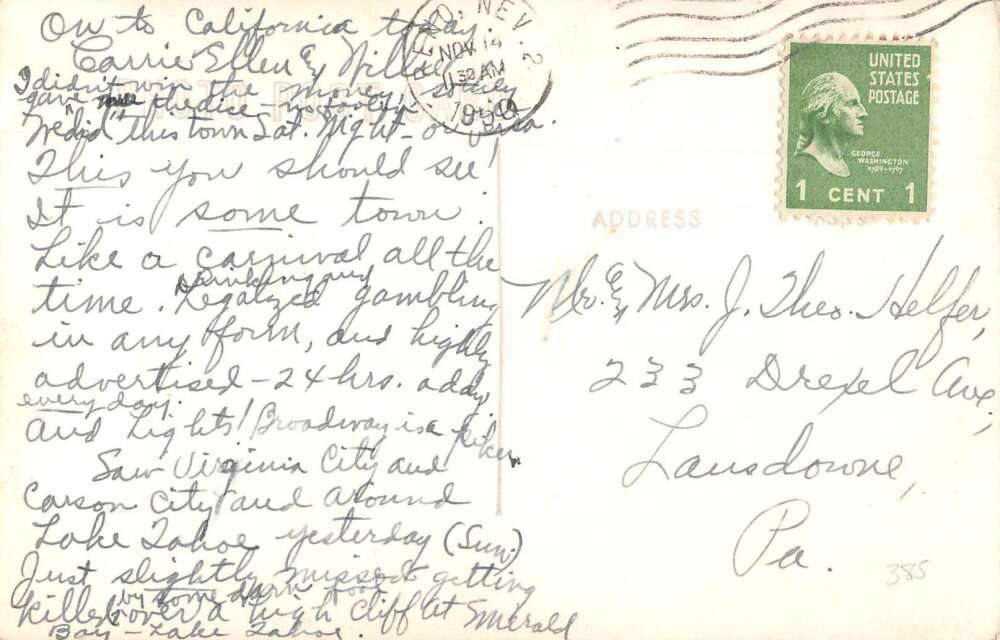 On to California today.
Carrie Ellen & Will
I didn't win the money, so they
gave me the dise - no foolin
We did this town Sat. Night -
This you should see!
It is some town.
Like a carnival all the
time. Drinking and
Legalzed gambling
in any form, and highly
advertised - 24 hrs. a day,
every day.
and Lights! Broadway is a piker
Saw Virginia City and
Carson City and around
Lake Tahoe yesterday (Sun.)
Just slightly missed getting
killed by some darn fool
over a high cliff at Emerald
Bay - Lake Tahoe.
RENO, NEV. 2
NOV 14
11 30 AM
1950
PHOTO POST CARD
UNITED
STATES
POSTAGE
GEORGE
WASHINGTON
1789-1797
1 CENT 1
ADDRESS
Mr. & Mrs. J. Theo. Helfer,
233 Drexel Ave,
Lansdowne,
Pa.
385